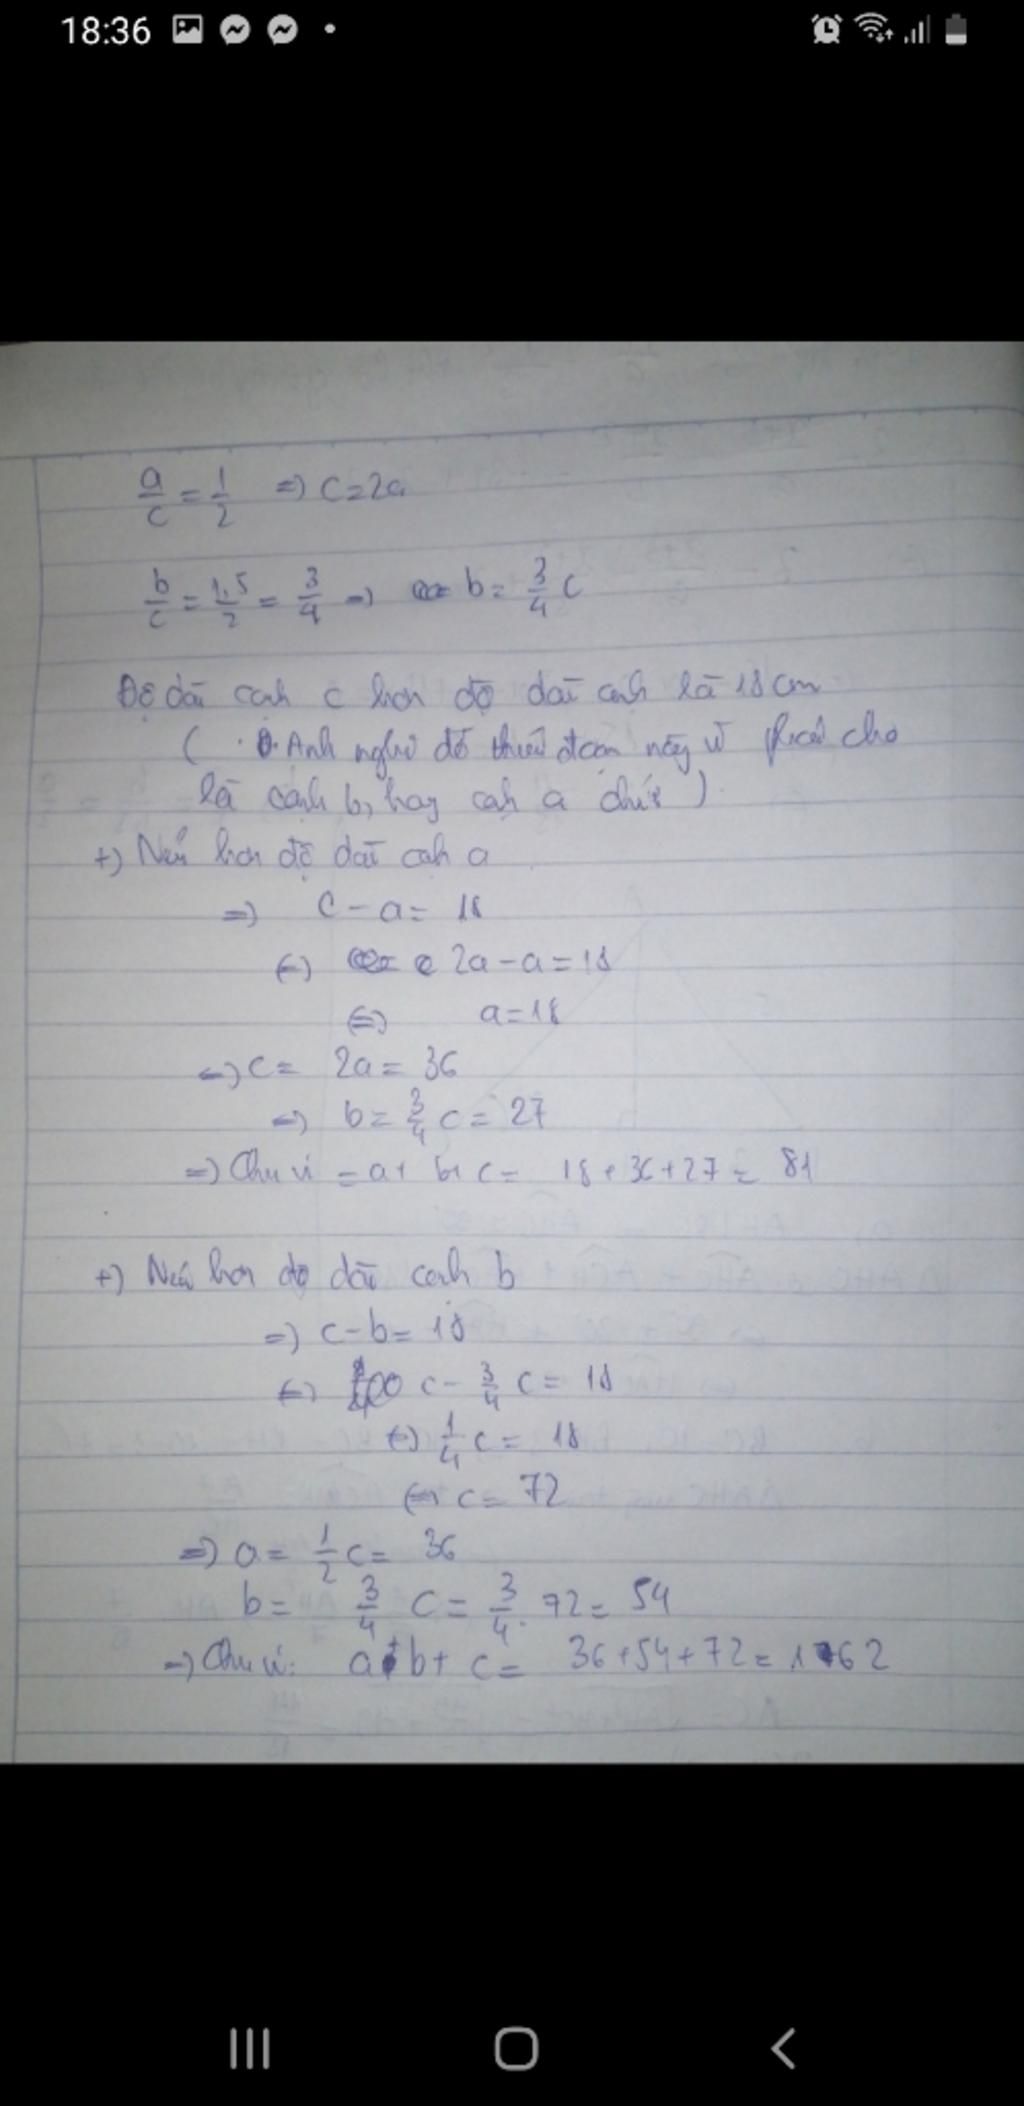 18:36
a/c = 1/2 => c = 2a
b/c = 1,5/2 = 3/4 => b = 3/4 c
Độ dài cạnh c hơn độ dài cạnh là 18 cm
( Anh nghĩ đề thiếu đoạn này vì phải cho
là cạnh b, hay cạnh a chứ )
+) Nếu hơn độ dài cạnh a
=> c - a = 18
<=> 2a - a = 18
<=> a = 18
=> c = 2a = 36
=> b = 3/4 c = 27
=> Chu vi = a + b + c = 18 + 36 + 27 = 81
+) Nếu hơn độ dài cạnh b
=> c - b = 18
<=> c - 3/4 c = 18
<=> 1/4 c = 18
<=> c = 72
=> a = 1/2 c = 36
b = 3/4 c = 3/4 . 72 = 54
=> Chu vi: a + b + c = 36 + 54 + 72 = 162